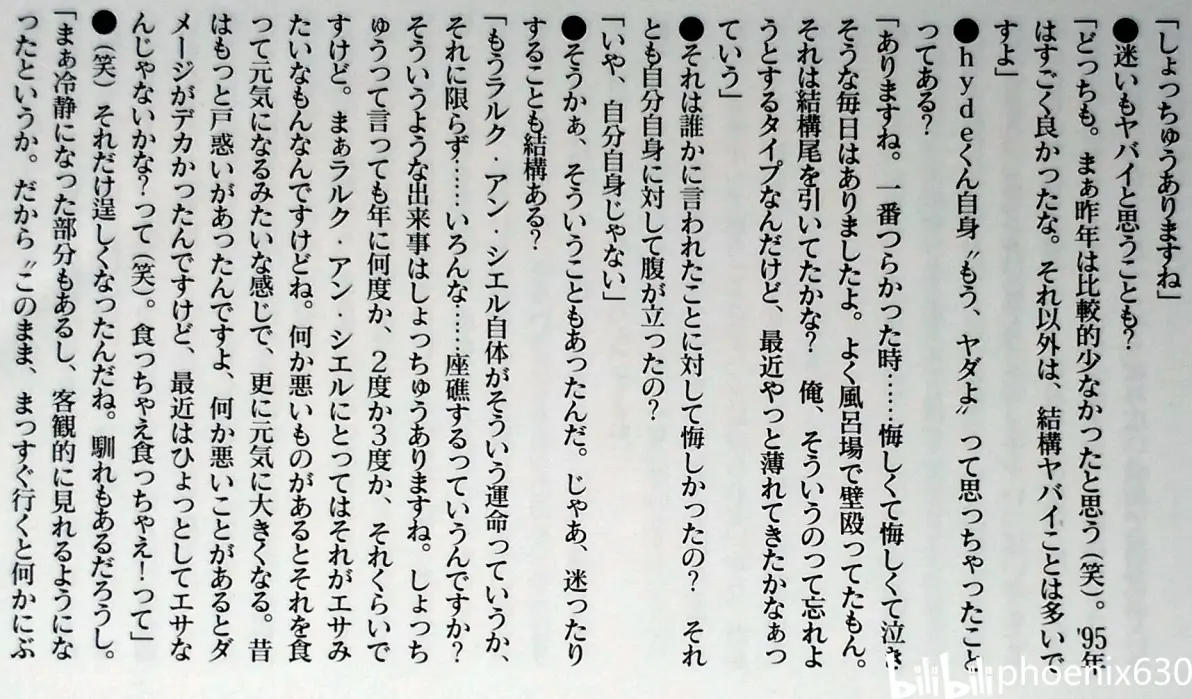 「しょっちゅうありますね」
●迷いもヤバイと思うことも?
「どっちも。まぁ昨年は比較的少なかったと思う(笑)。'95年
はすごく良かったな。それ以外は、結構ヤバイことは多いで
すよ」
●hydeくん自身〝もう、ヤダよ〟って思っちゃったこと
ってある?
「ありますね。一番つらかった時……悔しくて悔しくて泣き
そうな毎日はありましたよ。よく風呂場で壁殴ってたもん。
それは結構尾を引いてたかな? 俺、そういうのって忘れよ
うとするタイプなんだけど、最近やっと薄れてきたかなぁっ
ていう」
●それは誰かに言われたことに対して悔しかったの? それ
とも自分自身に対して腹が立ったの?
「いや、自分自身じゃない」
●そうかぁ、そういうこともあったんだ。じゃあ、迷ったり
することも結構ある?
「もうラルク・アン・シエル自体がそういう運命っていうか、
それに限らず……いろんな……座礁するっていうんですか?
そういうような出来事はしょっちゅうありますね。しょっち
ゅうって言っても年に何度か、2度か3度か、それくらいで
すけど。まぁラルク・アン・シエルにとってはそれがエサみ
たいなもんなんですけどね。何か悪いものがあるとそれを食
って元気になるみたいな感じで、更に元気に大きくなる。昔
はもっと戸惑いがあったんですよ、何か悪いことがあるとダ
メージがデカかったんですけど、最近はひょっとしてエサな
んじゃないかな?って(笑)。食っちゃえ食っちゃえ!って」
●(笑)それだけ逞しくなったんだね。馴れもあるだろうし。
「まぁ冷静になった部分もあるし、客観的に見れるようにな
ったというか。だから〝このまま、まっすぐ行くと何かにぶ
bilibili phoenix630